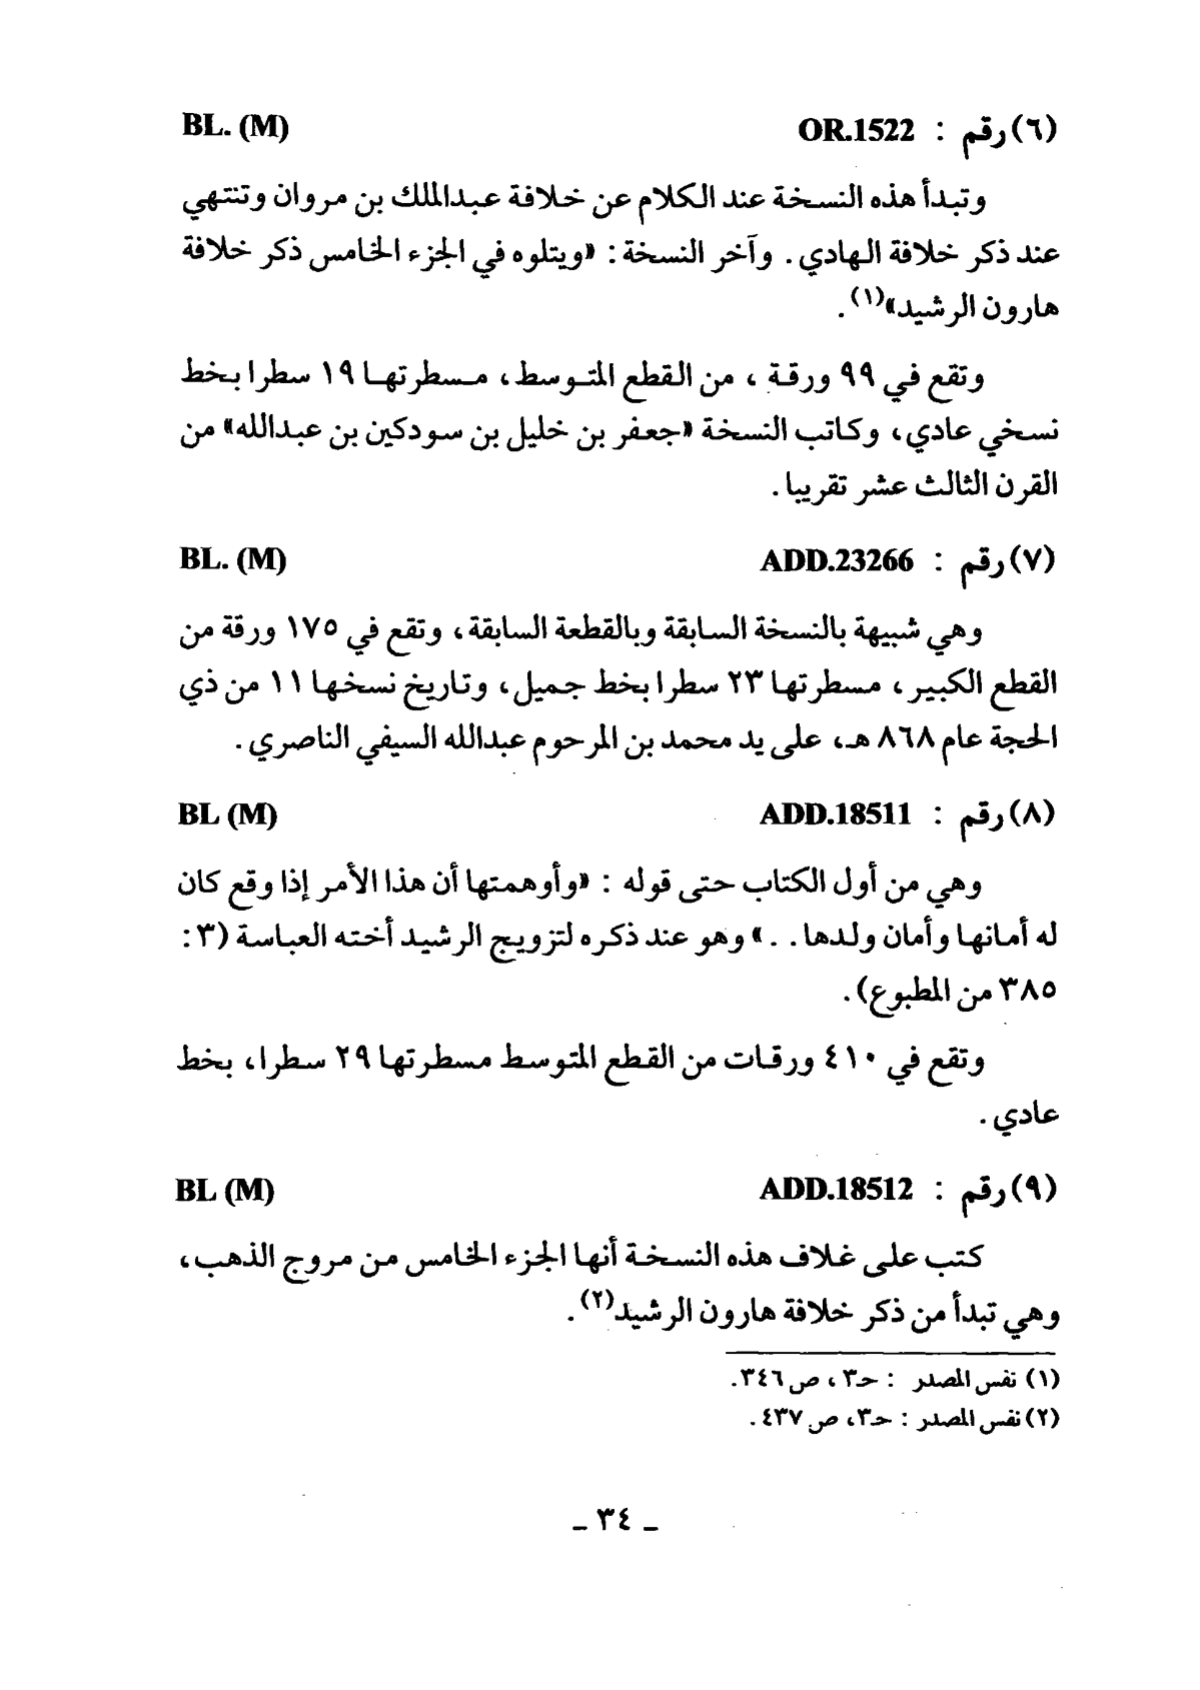 (٦) رقم : OR.1522 BL. (M)
وتبدأ هذه النسخة عند الكلام عن خلافة عبدالملك بن مروان وتنتهي
عند ذكر خلافة الهادي. وآخر النسخة : «ويتلوه في الجزء الخامس ذكر خلافة
هارون الرشيد»(١).
وتقع في ٩٩ ورقة ، من القطع المتوسط، مسطرتها ١٩ سطرا بخط
نسخي عادي، وكاتب النسخة «جعفر بن خليل بن سودكين بن عبدالله» من
القرن الثالث عشر تقريبا.
(٧) رقم : ADD.23266 BL. (M)
وهي شبيهة بالنسخة السابقة وبالقطعة السابقة، وتقع في ١٧٥ ورقة من
القطع الكبير، مسطرتها ٢٣ سطرا بخط جميل، وتاريخ نسخها ١١ من ذي
الحجة عام ٨٦٨ هـ، على يد محمد بن المرحوم عبدالله السيفي الناصري.
(٨) رقم : ADD.18511 BL (M)
وهي من أول الكتاب حتى قوله : «وأوهمتها أن هذا الأمر إذا وقع كان
له أمانها وأمان ولدها. . .» وهو عند ذكره لتزويج الرشيد أخته العباسة (٣ :
٣٨٥ من المطبوع).
وتقع في ٤١٠ ورقات من القطع المتوسط مسطرتها ٢٩ سطرا، بخط
عادي.
(٩) رقم : ADD.18512 BL (M)
كتب على غلاف هذه النسخة أنها الجزء الخامس من مروج الذهب،
وهي تبدأ من ذكر خلافة هارون الرشيد(٢).
(١) نفس المصدر : حـ٣ ، ص ٣٤٦.
(٢) نفس المصدر : حـ٣، ص ٤٣٧.
ـ ٣٤ ـ